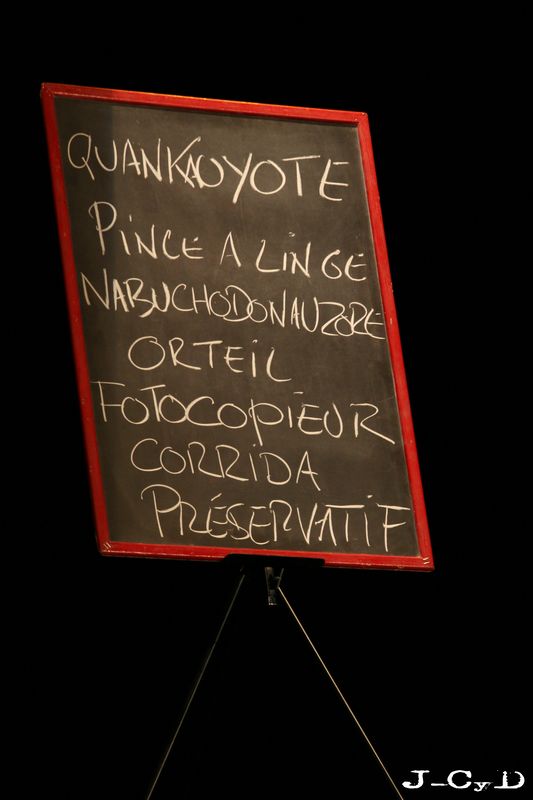 QUANKAUYOTE
PINCE A LINGE
NABUCHODONAUZORE
ORTEIL
FOTOCOPIEUR
CORRIDA
PRÉSERVATIF
J-CyD